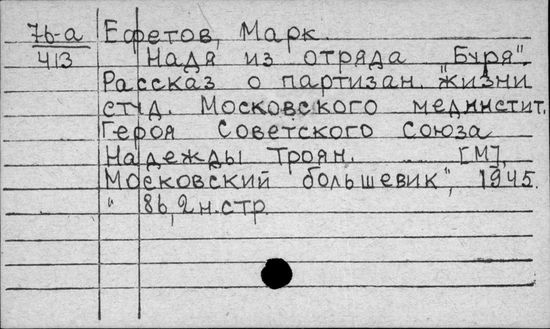 76-а Ефетов, Марк.
413 Надя из отряда "Буря".
Рассказ о партизан. жизни
студ. Московского мединстит.
Героя Советского Союза
Надежды Троян. [М],
Московский большевик", 1945.
" 86, 2 н. стр.